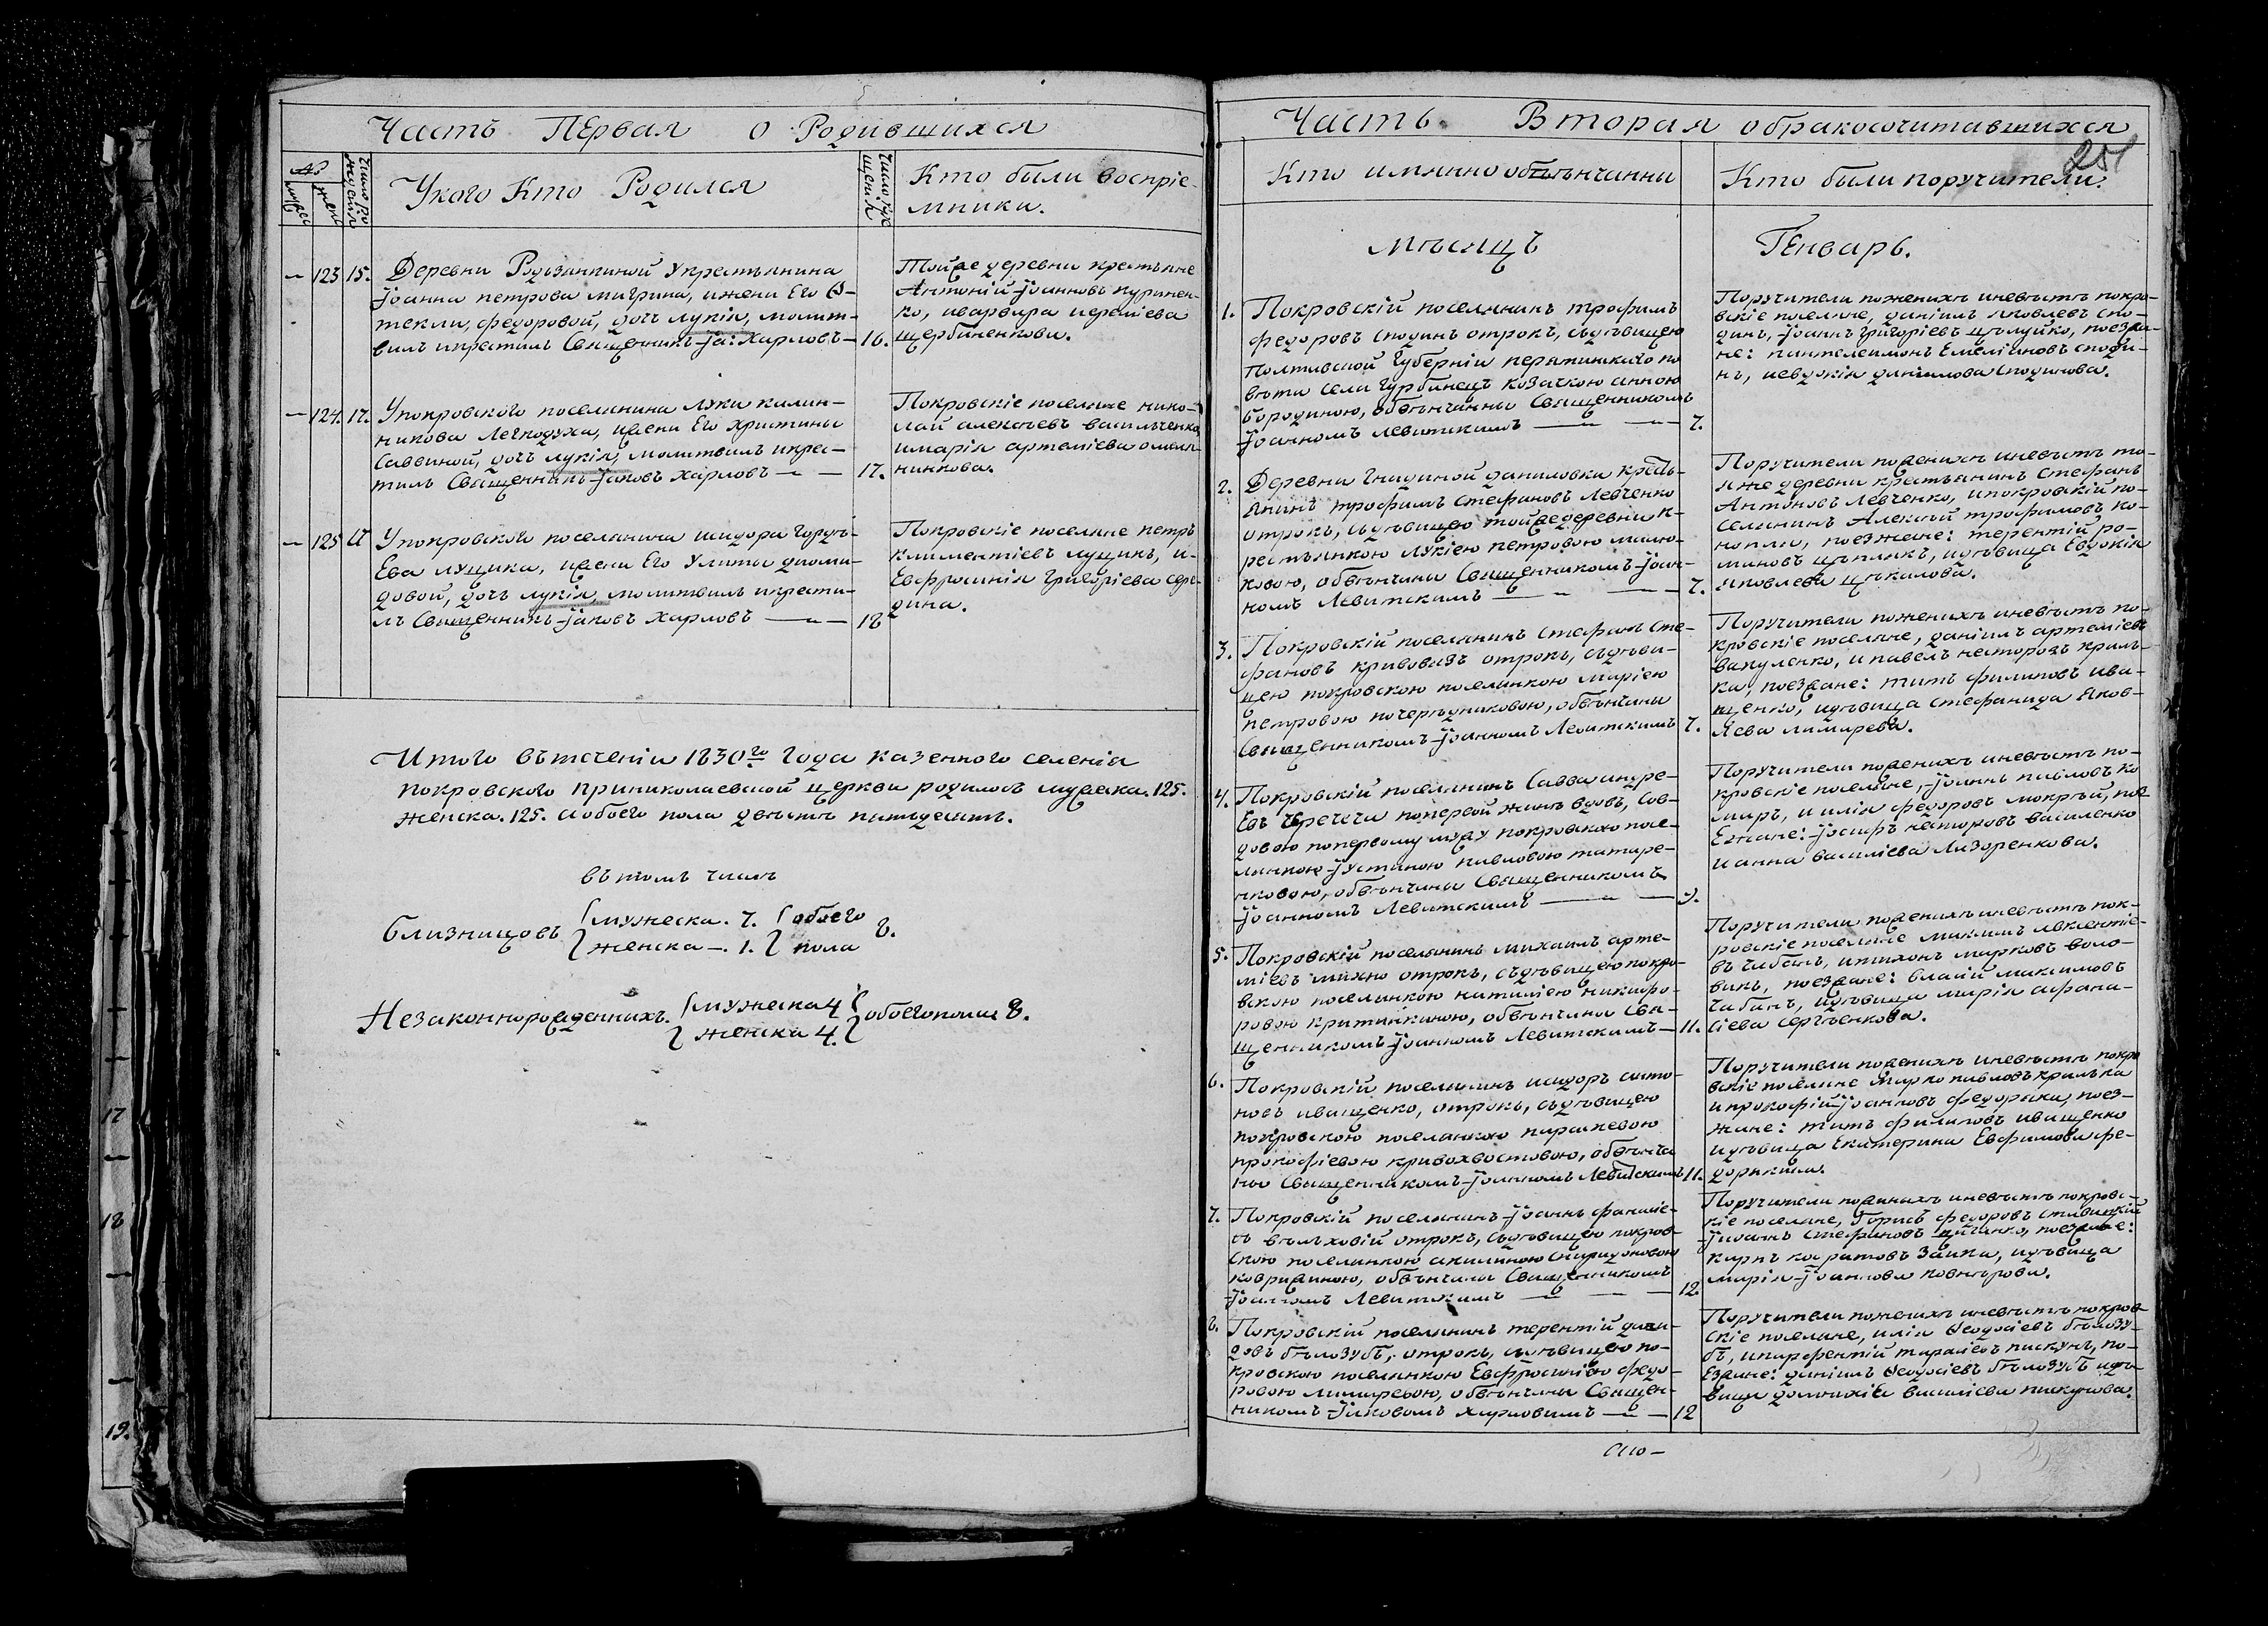 Часть Первая о Родившихся
Число рождения
Число крещения
муж. жен.
У кого Кто Родился
Кто были воспріе-
мники.
— 123 15. Деревни Родзянкиной у крестьянина
Іоанна петрова мигрина, и жени Его Ѳ-
текли, федоровой, дочь лукія, молит-
вилъ и крестилъ Священникъ Іа: Харловъ — 16.
Тойже деревни крестьяне
Антоній Іоанновъ куринен-
ко, и варвара иереміева
щербиненкова.
— 124. 17. У покровского поселянина Луки калин-
никова Легкодуха, и жени Его Христины
Саввиной, дочь лукія, молитвилъ и крес-
тилъ Священникъ Іаковъ Харловъ — — 17.
Покровскіе поселяне нико-
лай алексѣевъ васильченко,
и марія артеміева омель-
никова.
— 125 17 У покровского поселянина исидора гордѣ-
Ева лущика, и жени Его Улиты диоми-
довой, дочь лукія, молитвилъ и крести-
лъ Священникъ Іаковъ Харловъ — — 18
Покровскіе поселяне петръ
климентіевъ лущикъ, и-
Евфросинія григоріева сер-
дина.
Итого въ теченіи 1830го года казенного селенія
покровского при николаевской церкви родилось мужеска. 125.
женска. 125. а обоего пола двѣстѣ пятдесятъ.
въ томъ числѣ
близнецовъ { мужеска. 7. { обоего
{ женска —. 1. } пола 8.
Незаконнорожденнихъ. { мужеска 4 }
{ женска 4. } обоего пола 8.
Часть Вторая о бракосочитавшихся
251
Кто имянно обвѣнчанни
Кто были поручители.
Мѣсяцъ Генварь.
1. Покровскій поселянинъ трофимъ
федоровъ сподинъ отрокъ, съ дѣвицею
Полтавской губерніи перятинскаго по
вѣта села гурбинецъ козачкою анною
бородиною, обвѣнчанны Священникомъ
Іоанномъ Левитскимъ — — 7.
Поручители по женихѣ и невѣстѣ покро-
вскіе поселяне, даніилъ яковлевъ спо-
динъ, Іоаннъ григоріевъ цѣлуйко, поезжа-
не: пантелеимонъ Емеліановъ споди-
нъ, и евдокія даниилова сподинова.
2. Деревни Гнидиной даниловки кресть-
янинъ трофимъ стефановъ Левченко
отрокъ, съ дѣвицею тойже деревни к-
рестьянкою лукіею петровою малю-
ковою, обвѣнчаны Священникомъ Іоан-
номъ Левитскимъ — — 7.
Поручители по женихѣ и невѣстѣ то-
я же деревни крестьянинъ Стефанъ
Антоновъ Левченко, и покровскій по-
селянинъ Алексѣй трофимовъ ко-
нопля, поезжане: терентій ро-
мановъ и дѣвица Евдокія
яковлева
3. Покровскій поселянинъ стефанъ сте-
фановъ кривовязъ отрокъ, съ дѣви-
цею покровскою поселянкою маріею
петровою почерѣдниковою, обвѣнчаны
Священникомъ Іоанномъ Левитскимъ 7.
Поручители по женихѣ и невѣстѣ по-
кровскіе поселяне, даніилъ артеміевъ
вакуленко, и павелъ несторовъ криль-
ка, поезжане: титъ филиповъ ива-
щенко, и дѣвица стефанида Яков-
лева лимарева.
4. Покровскій поселянинъ Савва андре-
Евъ по первой женѣ вдовъ, со в-
довою по первому мужу покровскою посе-
лянкою Іустиною павловою татаре-
нковою, обвѣнчаны Священникомъ
Іоанномъ Левитскимъ — — 9.
Поручители по женихѣ и невѣстѣ по-
кровскіе поселяне, Іоаннъ павловъ ко
миръ, и илія федоровъ мокрѣй, по-
Езжане: Іосифъ несторовъ василенко
и анна василіева Лизоренкова.
5. Покровскій поселянинъ михаилъ арте-
міевъ михно отрокъ, съ дѣвицею покро-
вскою поселянкою наталіею никифо-
ровою критинкиною, обвѣнчаны Свя-
щенникомъ Іоанномъ Левитскимъ — 11.
Поручители по женихѣ и невѣстѣ пок-
ровскіе поселяне максимъ авксентіе-
въ чабанъ, и тихонъ марковъ воло-
викъ, поезжане: власій максимовъ
чабанъ, и дѣвица марія афана-
сіева сергѣенкова.
6. Покровскій поселянинъ исидоръ сило-
новъ иващенко, отрокъ, съ дѣвицею
покровскою поселянкою параскевою
прокофіевою кривохвостовою, обвѣнча
ны Священникомъ Іоанномъ Левитскимъ 11.
Поручители по женихѣ и невѣстѣ покро
вскіе поселяне марко павловъ крилька
и прокофій Іоанновъ федоряка, поез-
жане: титъ филиповъ иващенко
и дѣвица Екатерина Евфимова фе-
дорякина.
7. Покровскій поселянинъ Іоаннъ
въ вѣльховій отрокъ, съ дѣвицею покров-
скою поселянкою акилиною спиридоновою
коврижиною, обвѣнчаны Священникомъ
Іоанномъ Левитскимъ — — 12.
Поручители по женихѣ и невѣстѣ покровс-
кіе поселяне, борисъ федоровъ ставицкій
Іоаннъ стефановъ поезжане:
карпъ кодратовъ Заика, и дѣвица
марія Іоаннова
8. Покровскій поселянинъ терентій дави-
довъ бѣлозубъ, отрокъ, съ дѣвицею по-
кровскою поселянкою Евфросиніею федо-
ровою лимаревою, обвѣнчаны Священ-
никомъ Іаковомъ харловимъ — — 12
Поручители по женихѣ и невѣстѣ покров-
скіе поселяне, илія Ѳеодосіевъ бѣлозу-
бъ, и парфентій тарасіевъ пискунъ, по-
Езжане: даніилъ Ѳеодосіевъ бѣлозубъ и дѣ-
вица домникія василіева пискунова.